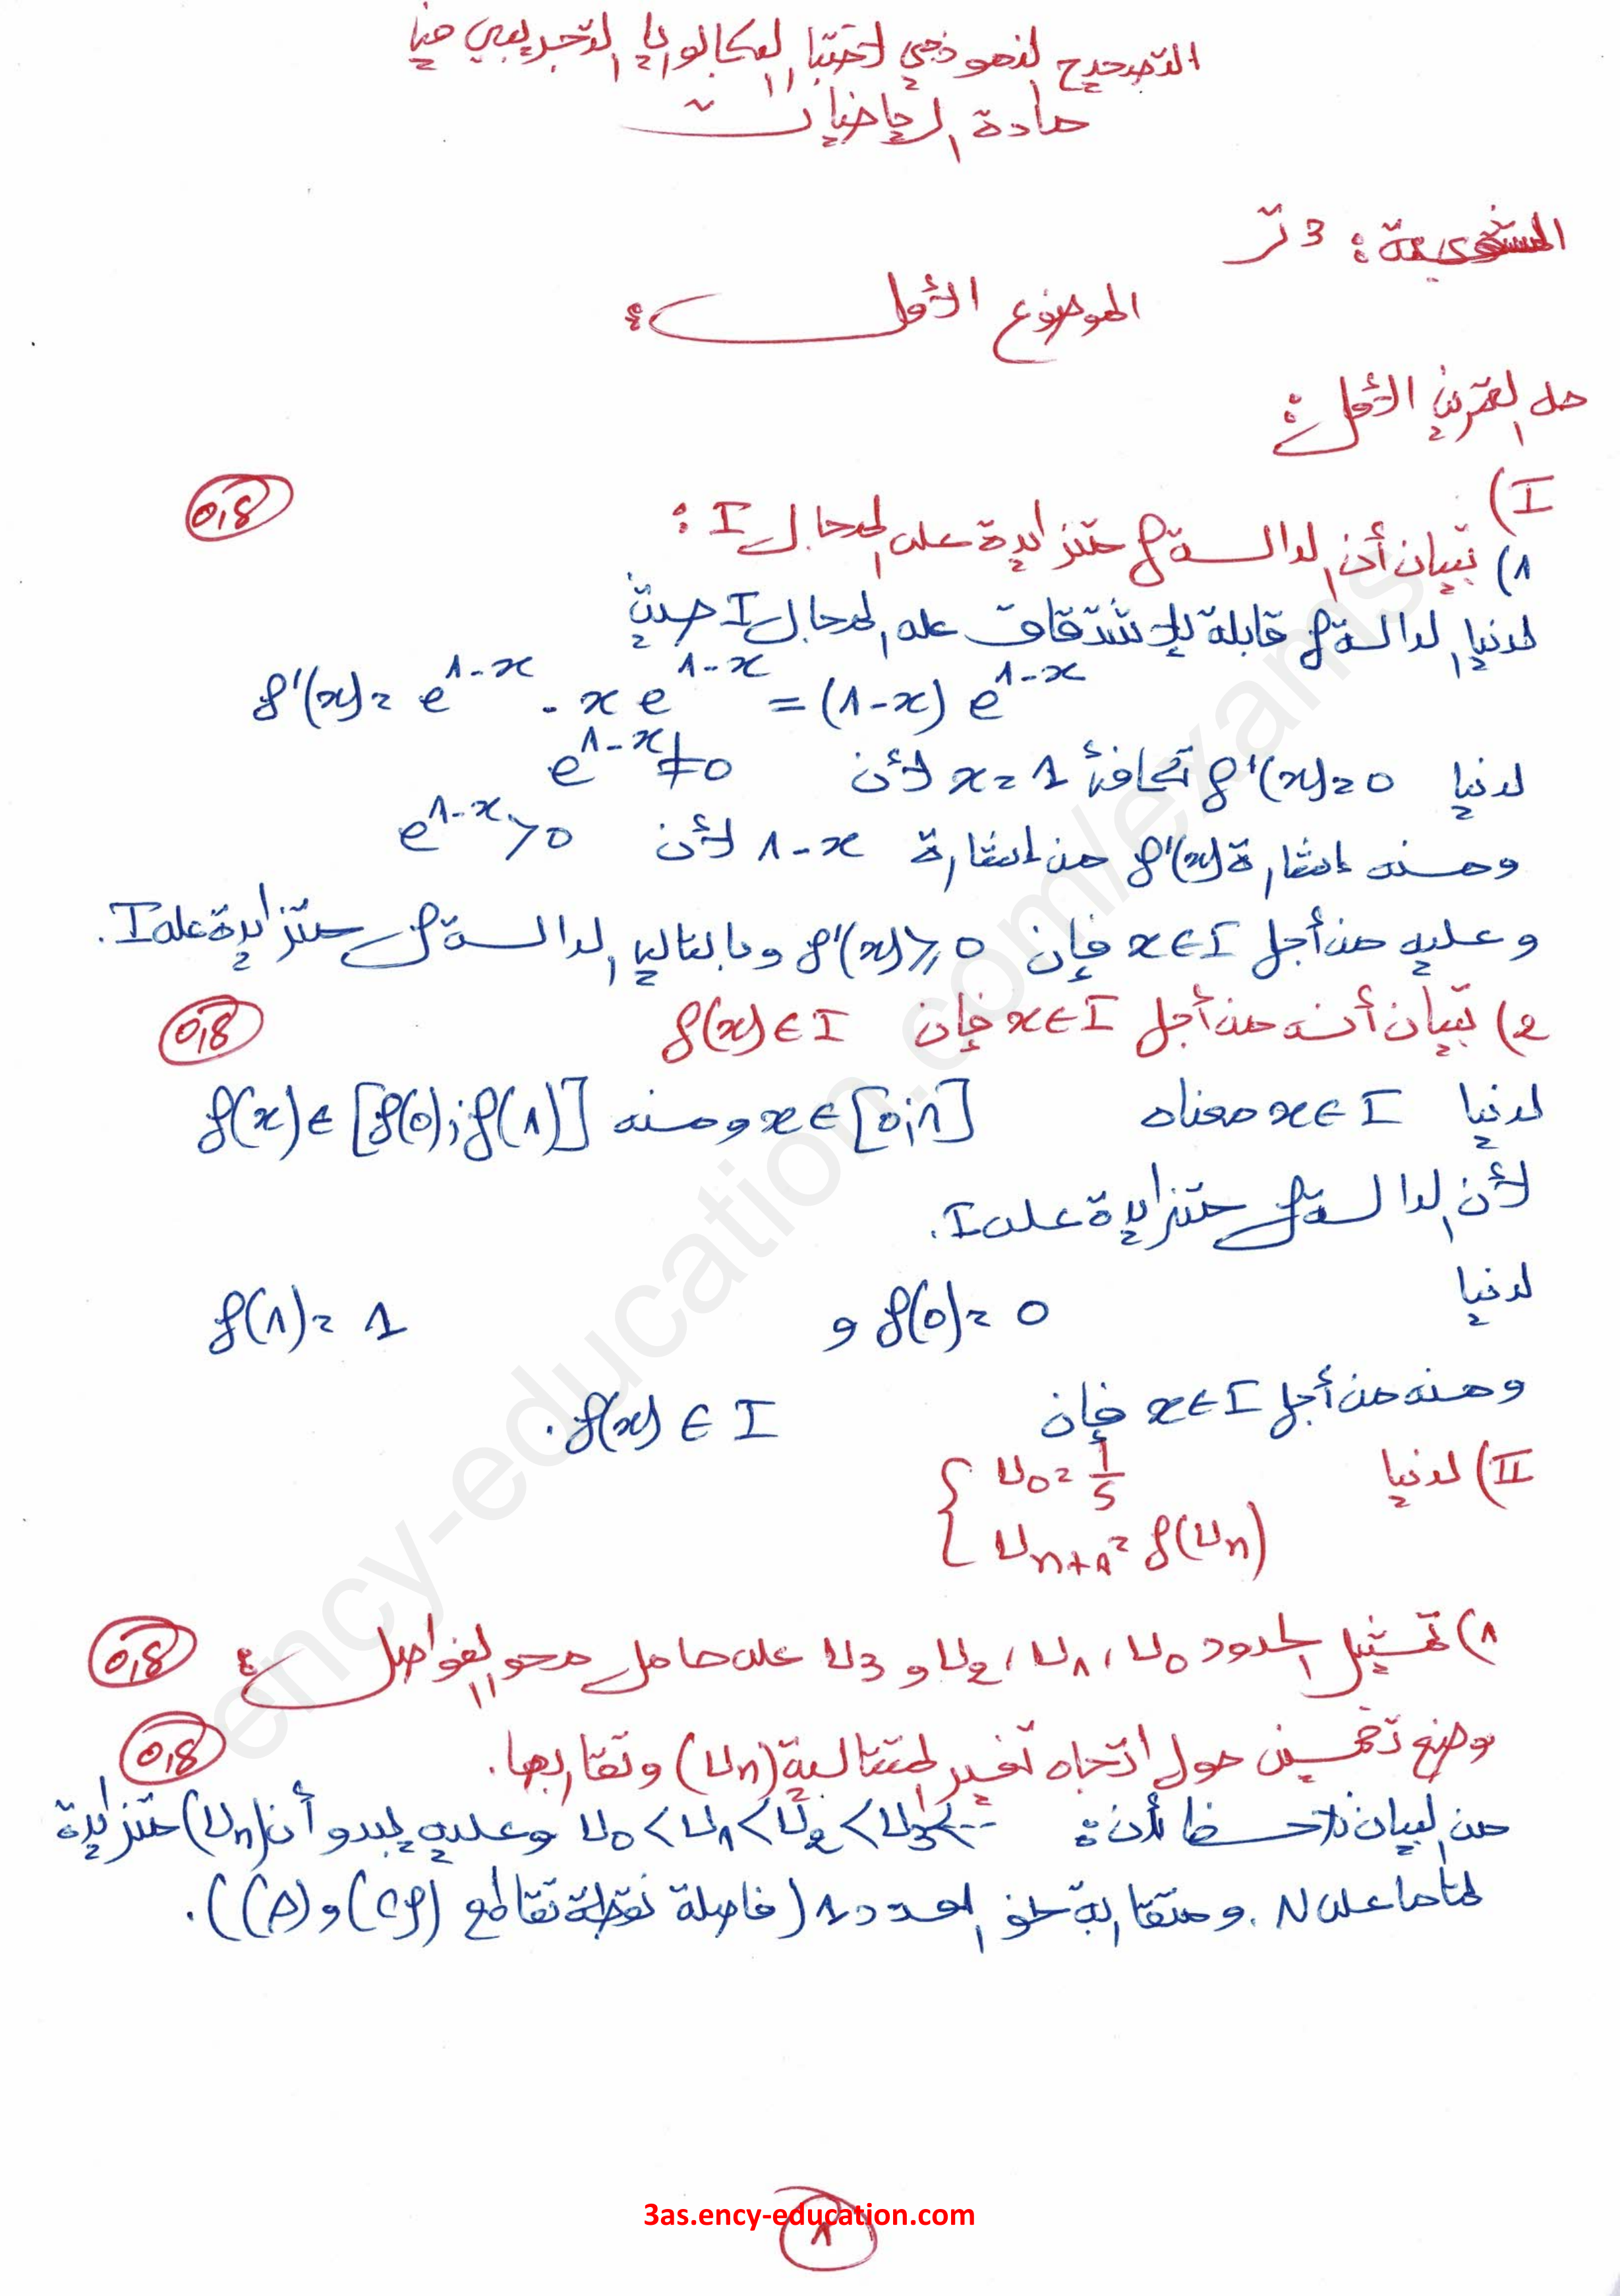 التصحيح النموذجي لاختبار البكالوريا التجريبي في
مادة الرياضيات
الشعبة: 3 تر
الموضوع الأول:
حل التمرين الأول:
I)
1) تبيان أن الدالة f متزايدة على المجال I :
0,8
لدينا الدالة f قابلة للإشتقاق على المجال I حيث
f'(x) = e^{1-x} - x e^{1-x} = (1-x) e^{1-x}
لدينا f'(x) = 0 تكافئ x = 1 لأن e^{1-x} ≠ 0
ومنه إشارة f'(x) من إشارة 1-x لأن e^{1-x} > 0
وعليه من أجل x ∈ I فإن f'(x) ⩾ 0 وبالتالي الدالة f متزايدة على I.
2) تبيان أنه من أجل x ∈ I فإن f(x) ∈ I
0,8
لدينا x ∈ I معناه x ∈ [0;1] ومنه f(x) ∈ [f(0);f(1)]
لأن الدالة f متزايدة على I.
لدينا f(0) = 0 و f(1) = 1
ومنه من أجل x ∈ I فإن f(x) ∈ I.
II) لدينا { U_0 = 1/5
U_{n+1} = f(U_n)
1) تمثيل الحدود U_0 ، U_1 ، U_2 و U_3 على حامل محور الفواصل:
0,8
وضع تخمين حول اتجاه تغير المتتالية (U_n) وتقاربها.
0,8
من البيان نلاحظ أن: U_0 < U_1 < U_2 < U_3 < ... وعليه يبدو أن (U_n) متزايدة
تماما على N. ومتقاربة نحو العدد 1 (فاصلة نقطة تقاطع (Cf) و (Δ)).
3as.ency-education.com
1
ency-education.com/exams